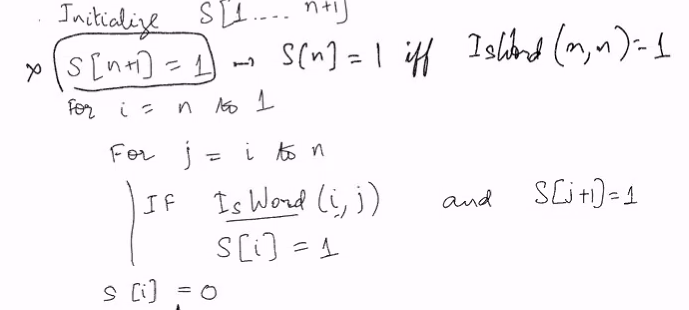 Initialize S[1.... n+1]
S[n+1] = 1 → S[n] = 1 iff IsWord (n,n) = 1
For i = n to 1
For j = i to n
IF IsWord (i,j) and S[j+1]=1
S[i] = 1
S[i] = 0